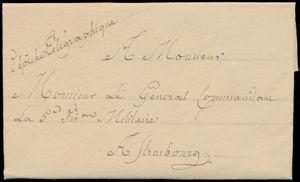 Dépêche Télégraphique
A Monsieur
Monsieur Le Général Commandant
La 5e Don Militaire
A Strasbourg